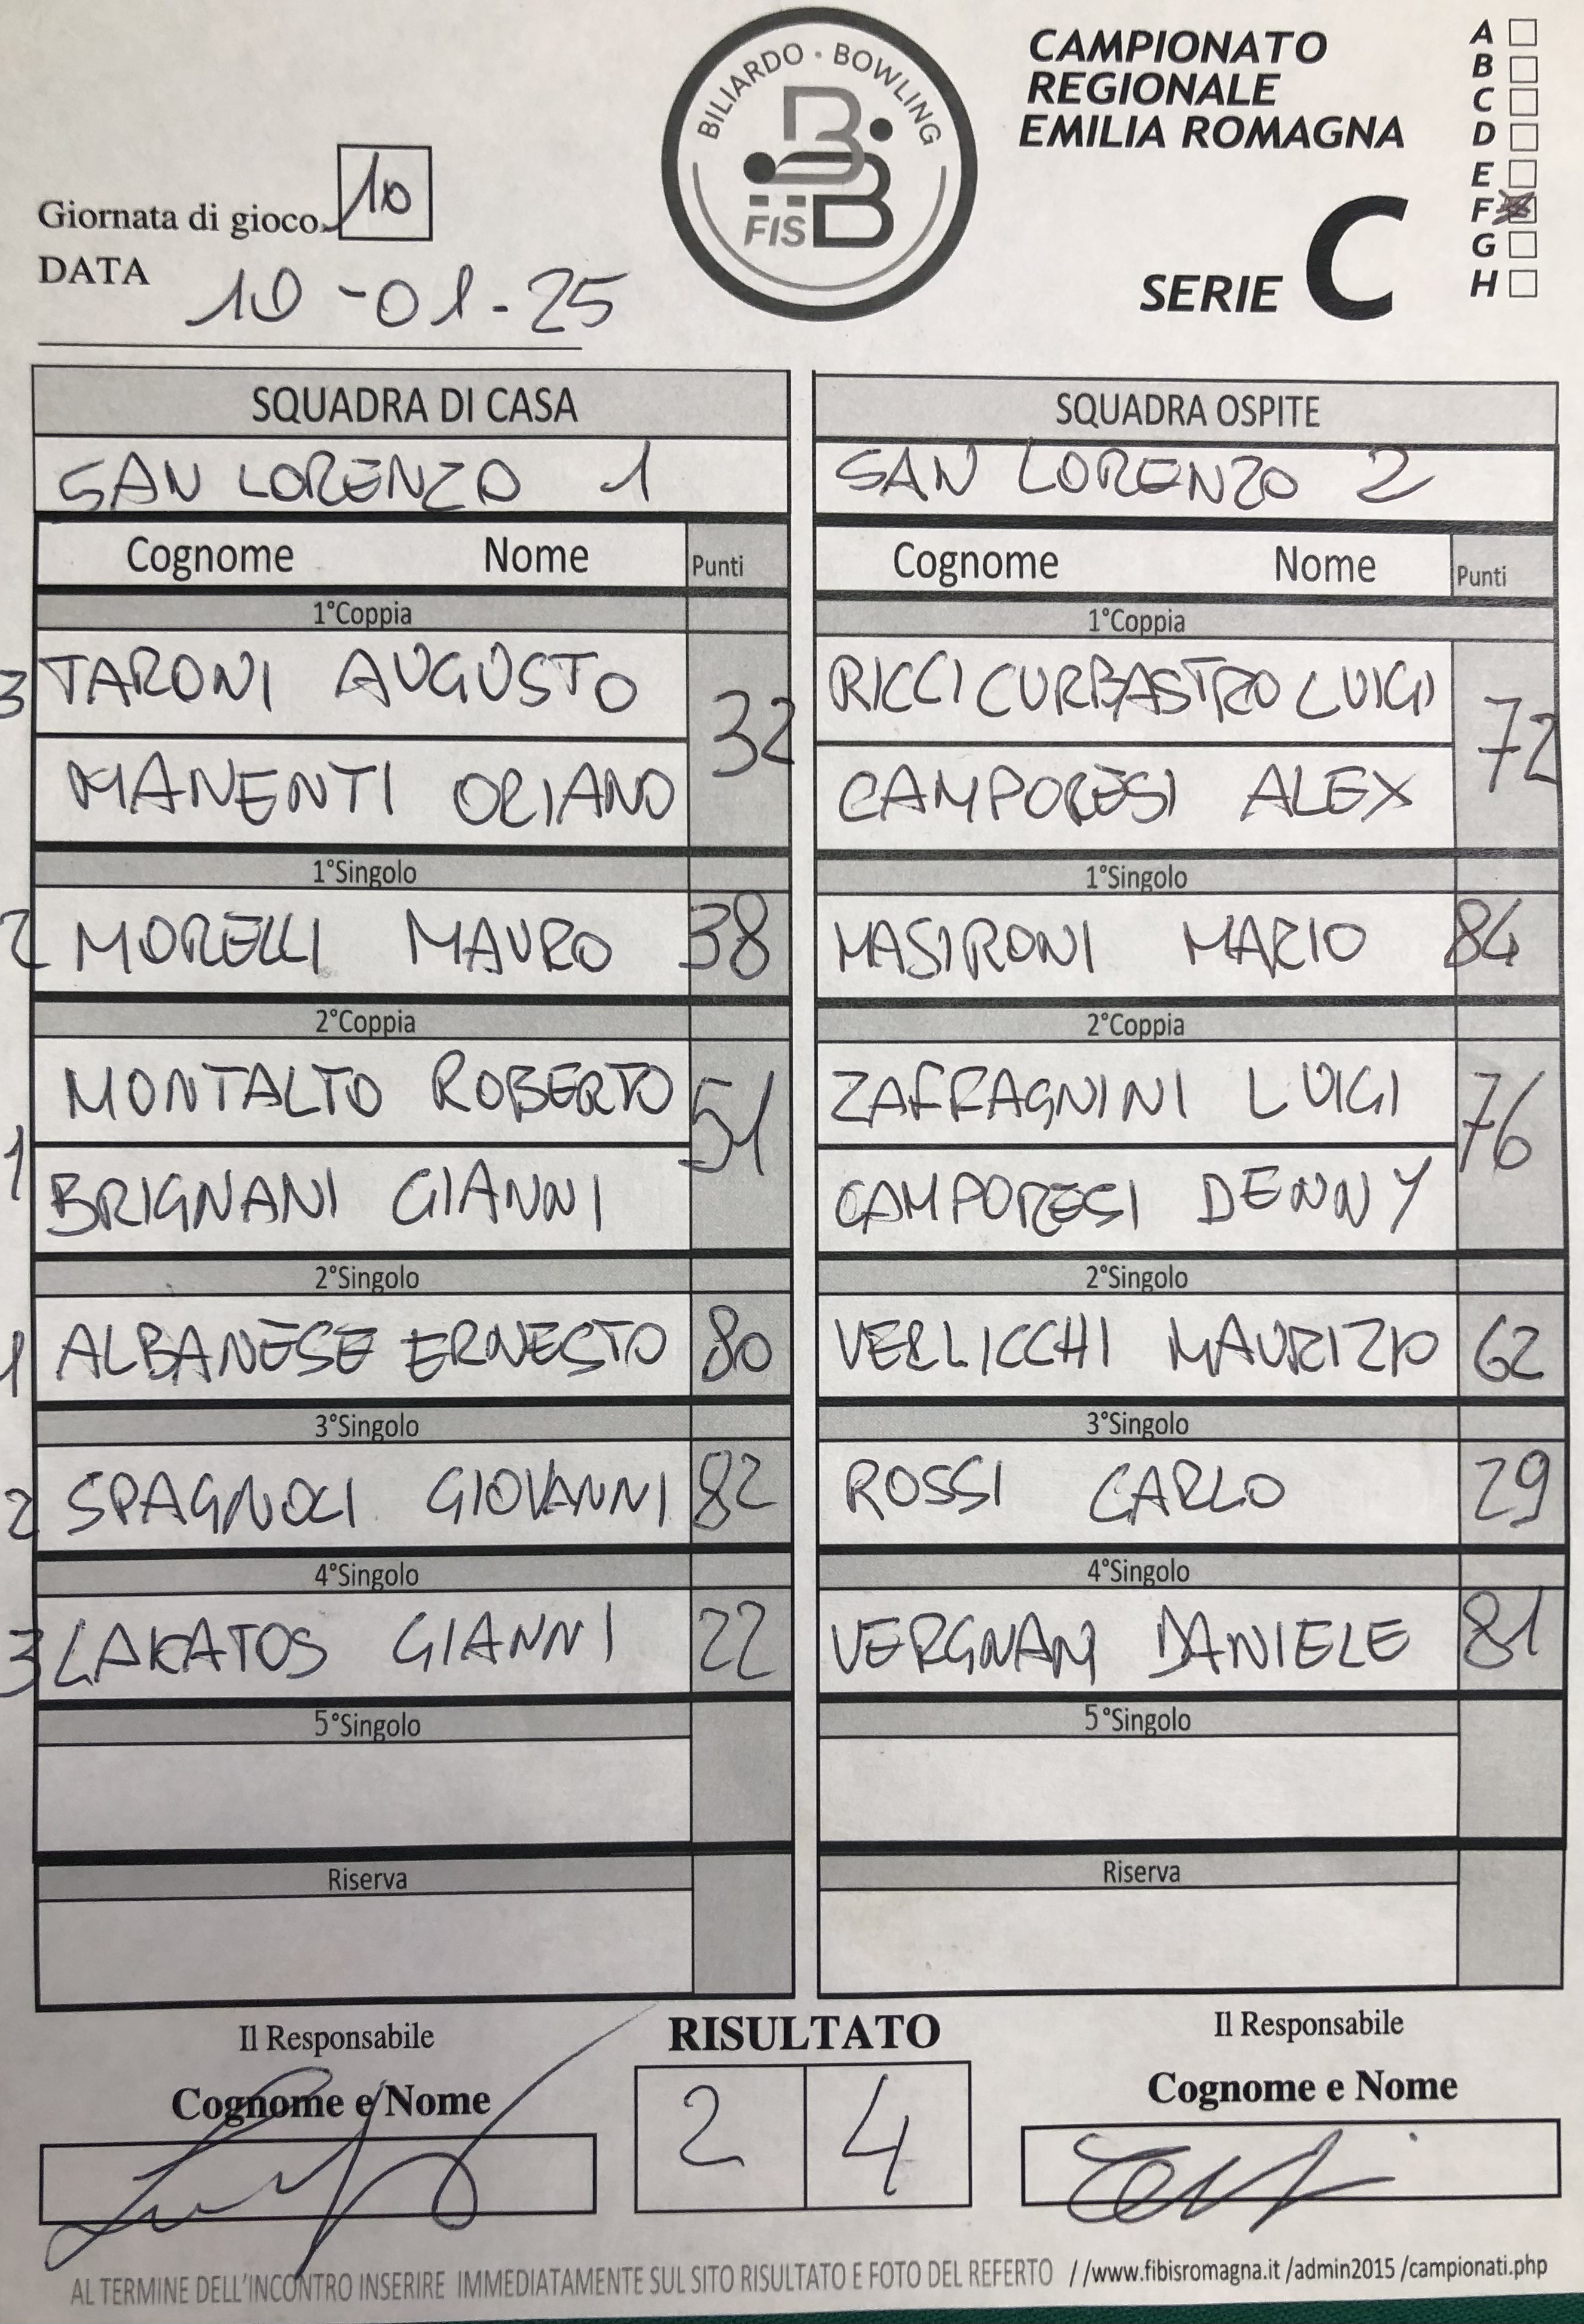 BILIARDO · BOWLING
FISBB
CAMPIONATO
REGIONALE
EMILIA ROMAGNA
SERIE C
A
B
C
D
E
F
G
H
Giornata di gioco 10
DATA 10-01-25
SQUADRA DI CASA
SAN LORENZO 1
Cognome Nome Punti
1°Coppia
3 TARONI AUGUSTO
32
MANENTI ORIANO
1°Singolo
2 MORELLI MAURO 38
2°Coppia
MONTALTO ROBERTO
1 51
BRIGNANI GIANNI
2°Singolo
1 ALBANESE ERNESTO 80
3°Singolo
2 SPAGNOLI GIOVANNI 82
4°Singolo
3 LAKATOS GIANNI 22
5°Singolo
Riserva
SQUADRA OSPITE
SAN LORENZO 2
Cognome Nome Punti
1°Coppia
RICCI CURBASTRO LUIGI
72
CAMPORESI ALEX
1°Singolo
MASIRONI MARIO 84
2°Coppia
ZAFFAGNINI LUIGI
76
CAMPORESI DENNY
2°Singolo
VERLICCHI MAURIZIO 62
3°Singolo
ROSSI CARLO 29
4°Singolo
VERGNANI DANIELE 81
5°Singolo
Riserva
Il Responsabile
Cognome e Nome
RISULTATO
2 4
Il Responsabile
Cognome e Nome
AL TERMINE DELL'INCONTRO INSERIRE IMMEDIATAMENTE SUL SITO RISULTATO E FOTO DEL REFERTO //www.fibisromagna.it /admin2015 /campionati.php